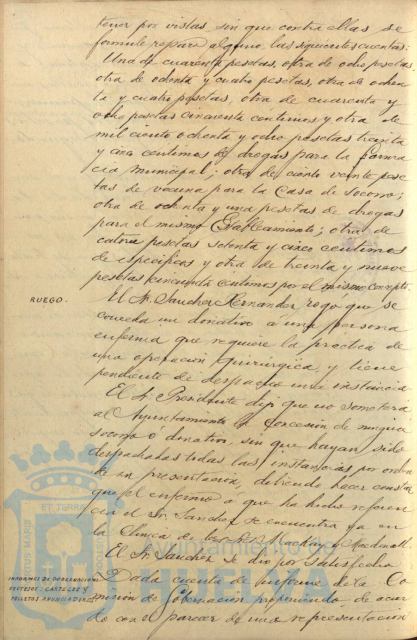 tener por vistas sin que contra ellas se
formule reparo alguno, las siguientes cuentas:
Una de cuarenta pesetas, otra de ocho pesetas
otra de ochenta y cuatro pesetas, otra de ochen
ta y cuatro pesetas, otra de cuarenta y
ocho pesetas cincuenta centimos y otra de
mil ciento ochenta y ocho pesetas treinta
y cinco centimos de drogas para la Farma
cia Municipal; otra de ciento veinte pese
tas de vacuna para la Casa de Socorro;
otra de ochenta y una pesetas de drogas
para el mismo Establecimiento; otra de
catorce pesetas setenta y cinco centimos
de especificos y otra de treinta y nueve
pesetas cincuenta centimos por el mismo concepto.
RUEGO.
El Sr. Sanchez Hernandez rogó que se
conceda un donativo a una persona
enferma que requiere la practica de
una operacion quirurgica, y tiene
pendiente de despacho una instancia
El Sr. Presidente dijo que no someterá
al Ayuntamiento la concesión de ningun
socorro ó donativo, sin que hayan sido
despachadas todas las instancias por orden
de su presentacion, debiendo hacer constar
que el enfermo a que ha hecho referen
cia el Sr. Sanchez se encuentra ya en
la Clinica de los Sres. Mackay y Macdonald.
El Sr. Sanchez se dio por satisfecho
INFORMES DE GOBERNACION
FESTEJOS: CARTELES Y
FOLLETOS ANUNCIADORES
Dada cuenta de informe de la Co
misión de Gobernación proponiendo, de acuer
do con el parecer de una representacion
ET TERRA
PORTUS MARIS
Ayuntamiento de
HUELVA